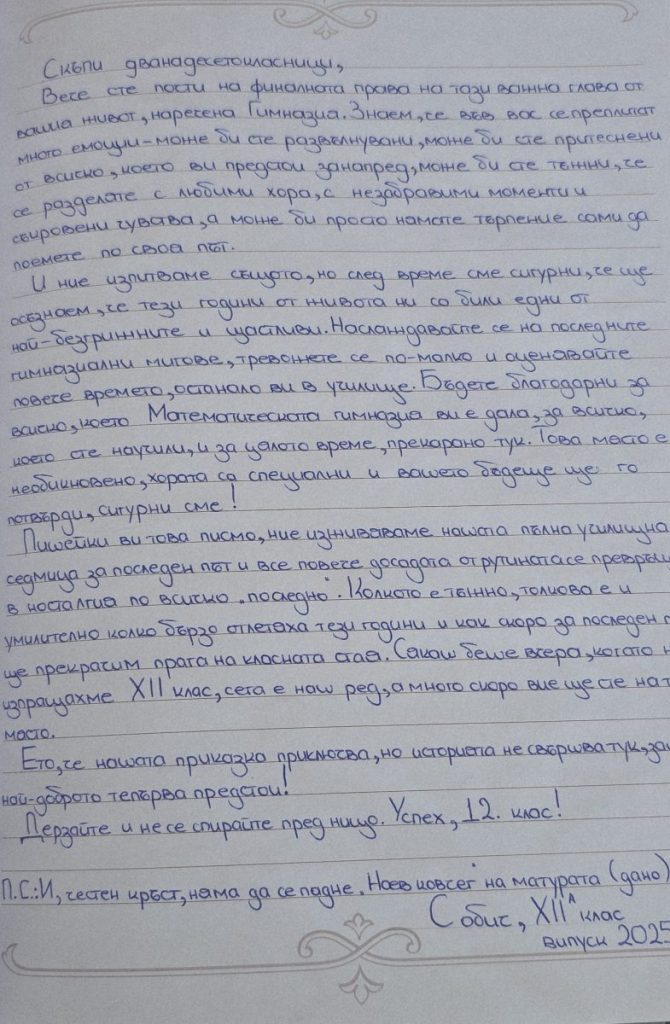 Скъпи дванадесетокласници,
Вече сте почти на финалната права на тази важна глава от
вашия живот, наречена Гимназия. Знаем, че във вас се преплитат
много емоции – може би сте развълнувани, може би сте притеснени
от всичко, което ви предстои занапред, може би сте тъжни, че
се разделяте с любими хора, с незабравими моменти и
съкровени чувства, а може би просто нямате търпение сами да
поемете по своя път.
И ние изпитваме същото, но след време сме сигурни, че ще
осъзнаем, че тези години от живота ни са били едни от
най-безгрижните и щастливи. Наслаждавайте се на последните
гимназиални мигове, тревожете се по-малко и оценявайте
повече времето, останало ви в училище. Бъдете благодарни за
всичко, което Математическата гимназия ви е дала, за всичко,
което сте научили, и за цялото време, прекарано тук. Това място е
необикновено, хората са специални и вашето бъдеще ще го
потвърди, сигурни сме!
Пишейки ви това писмо, ние изживяваме нашата пълна училищна
седмица за последен път и все повече досадата от рутината се превръщ
в носталгия по всичко „последно". Колкото е тъжно, толкова е и
умилително колко бързо отлетяха тези години и как скоро за последен п
ще прекрачим прага на класната стая. Сякаш беше вчера, когато н
изпращахме XII клас, сега е наш ред, а много скоро вие ще сте на т
място.
Ето, че нашата приказка приключва, но историята не свършва тук, за
най-доброто тепърва предстои!
Дерзайте и не се спирайте пред нищо. Успех, 12. клас!
П.С.: И, честен кръст, няма да се падне „Ноев ковчег" на матурата (дано)
С обич, XIIА клас
випуск 2025